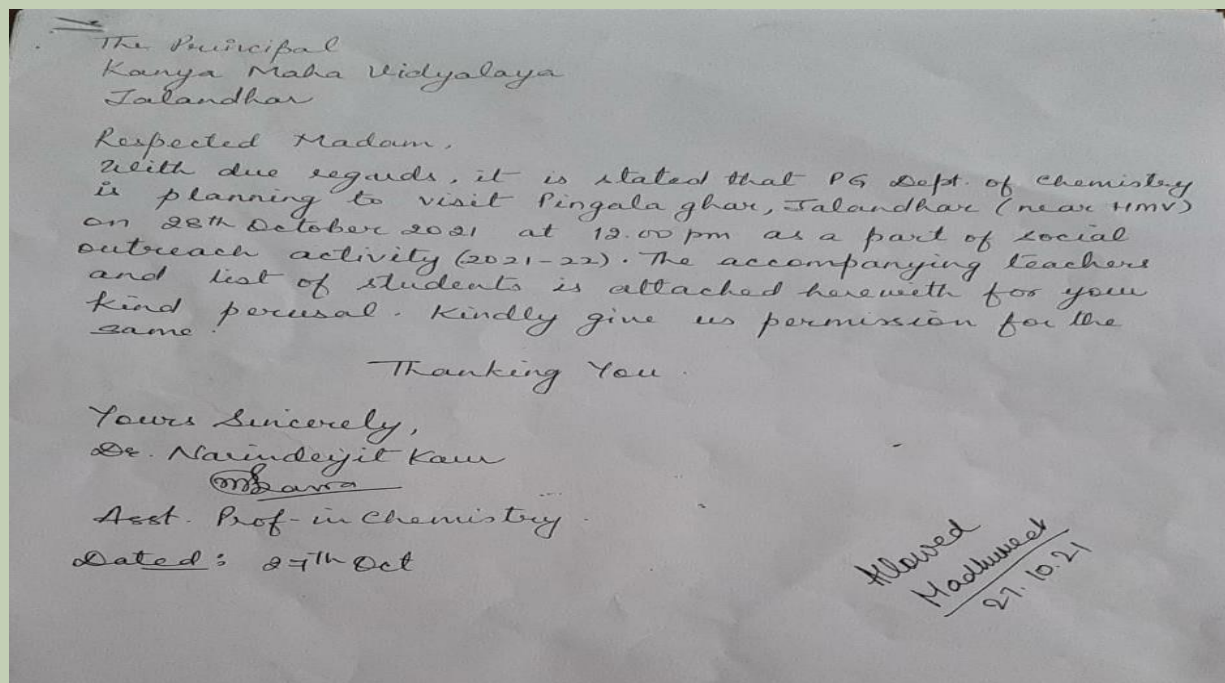 The Principal
Kanya Maha Vidyalaya
Jalandhar
Respected Madam,
With due regards, it is stated that PG Dept. of Chemistry
is planning to visit Pingala ghar, Jalandhar (near HMV)
on 28th October 2021 at 12.00 pm as a part of social
outreach activity (2021-22). The accompanying teachers
and list of students is attached herewith for your
kind perusal. Kindly give us permission for the
same.
Thanking You.
Yours Sincerely,
Dr. Narinderjit Kaur
Asst. Prof-in Chemistry.
Dated: 27th Oct
Allowed
Madhumeet
27.10.21